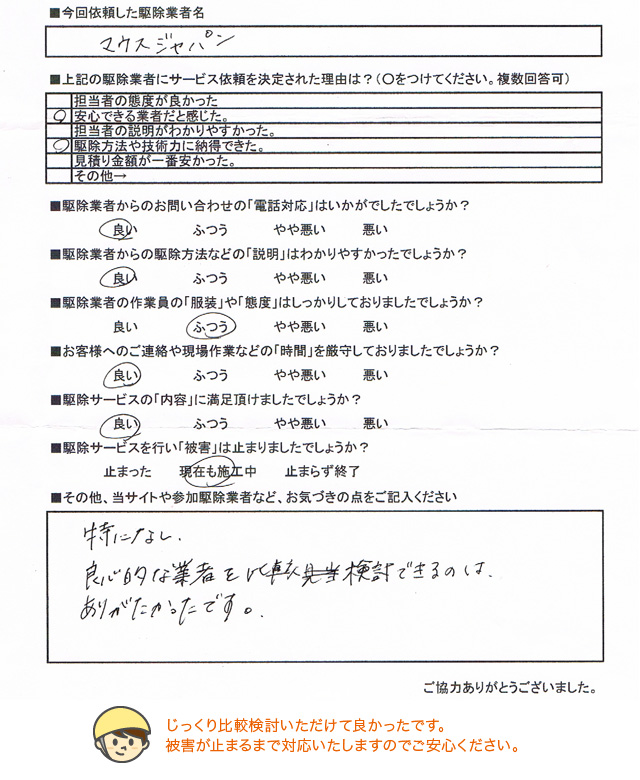 ■今回依頼した駆除業者名
マウスジャパン
■上記の駆除業者にサービス依頼を決定された理由は？（〇をつけてください。複数回答可）
担当者の態度が良かった
〇 安心できる業者だと感じた。
担当者の説明がわかりやすかった。
〇 駆除方法や技術力に納得できた。
見積り金額が一番安かった。
その他→
■駆除業者からのお問い合わせの「電話対応」はいかがでしたでしょうか？
良い ふつう やや悪い 悪い
■駆除業者からの駆除方法などの「説明」はわかりやすかったでしょうか？
良い ふつう やや悪い 悪い
■駆除業者の作業員の「服装」や「態度」はしっかりしておりましたでしょうか？
良い ふつう やや悪い 悪い
■お客様へのご連絡や現場作業などの「時間」を厳守しておりましたでしょうか？
良い ふつう やや悪い 悪い
■駆除サービスの「内容」に満足頂けましたでしょうか？
良い ふつう やや悪い 悪い
■駆除サービスを行い「被害」は止まりましたでしょうか？
止まった 現在も施工中 止まらず終了
■その他、当サイトや参加駆除業者など、お気づきの点をご記入ください
特になし.
良心的な業者を比較検討できるのは、
ありがたかったです。
ご協力ありがとうございました。
じっくり比較検討いただけて良かったです。
被害が止まるまで対応いたしますのでご安心ください。